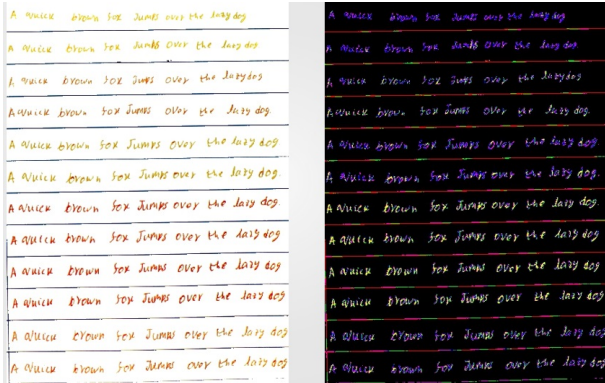 A quick brown fox Jumps over the lazy dog
A quick brown fox Jumps over the lazy dog
A quick brown fox Jumps over the lazy dog
A quick brown fox Jumps over the lazy dog.
A quick brown fox Jumps over the lazy dog.
A quick brown fox Jumps over the lazy dog.
A quick brown fox Jumps over the lazy dog.
A quick brown fox Jumps over the lazy dog
A quick brown fox Jumps over the lazy dog
A quick brown fox Jumps over the lazy dog
A quick brown fox Jumps over the lazy dog
A quick brown fox Jumps over the lazy dog
A quick brown fox Jumps over the lazy dog
A quick brown fox Jumps over the lazy dog
A quick brown fox Jumps over the lazy dog
A quick brown fox Jumps over the lazy dog.
A quick brown fox Jumps over the lazy dog.
A quick brown fox Jumps over the lazy dog.
A quick brown fox Jumps over the lazy dog.
A quick brown fox Jumps over the lazy dog
A quick brown fox Jumps over the lazy dog
A quick brown fox Jumps over the lazy dog
A quick brown fox Jumps over the lazy dog
A quick brown fox Jumps over the lazy dog